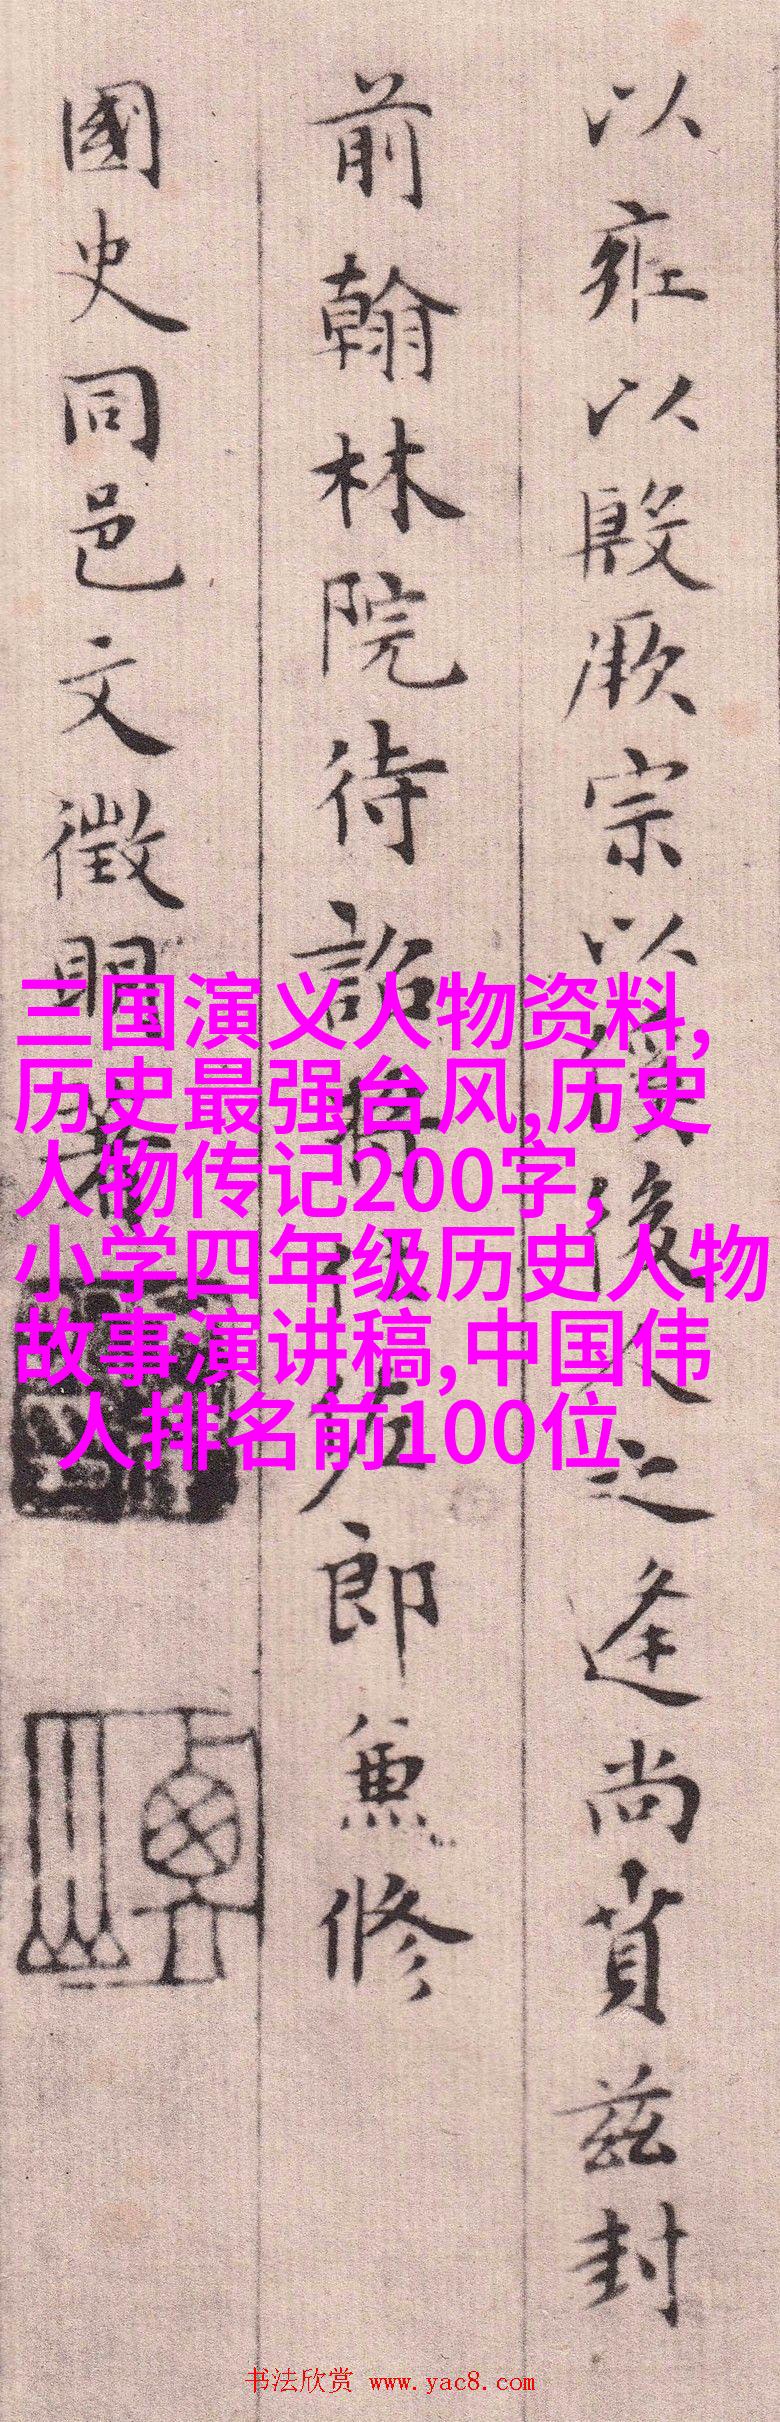 以雍以殷厥宗以後人之逢尚賁兹封
前翰林院待詔將仕佐郎兼修
國史同邑文徵明著
三国演义人物资料,
历史最强台风,历史
人物传记200字,
小学四年级历史人物
故事演讲稿,中国伟
人排名前100位
书法欣赏 www.yac8.com